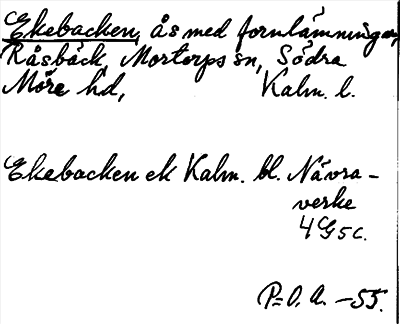 Ekebacken, ås med fornlämningar,
Råsbäck, Mortorps sn, Södra
Möre hd, Kalm. l.
Ekebacken ek Kalm. bl. Nävra-
verke
4G5c.
P.O.A. -55.